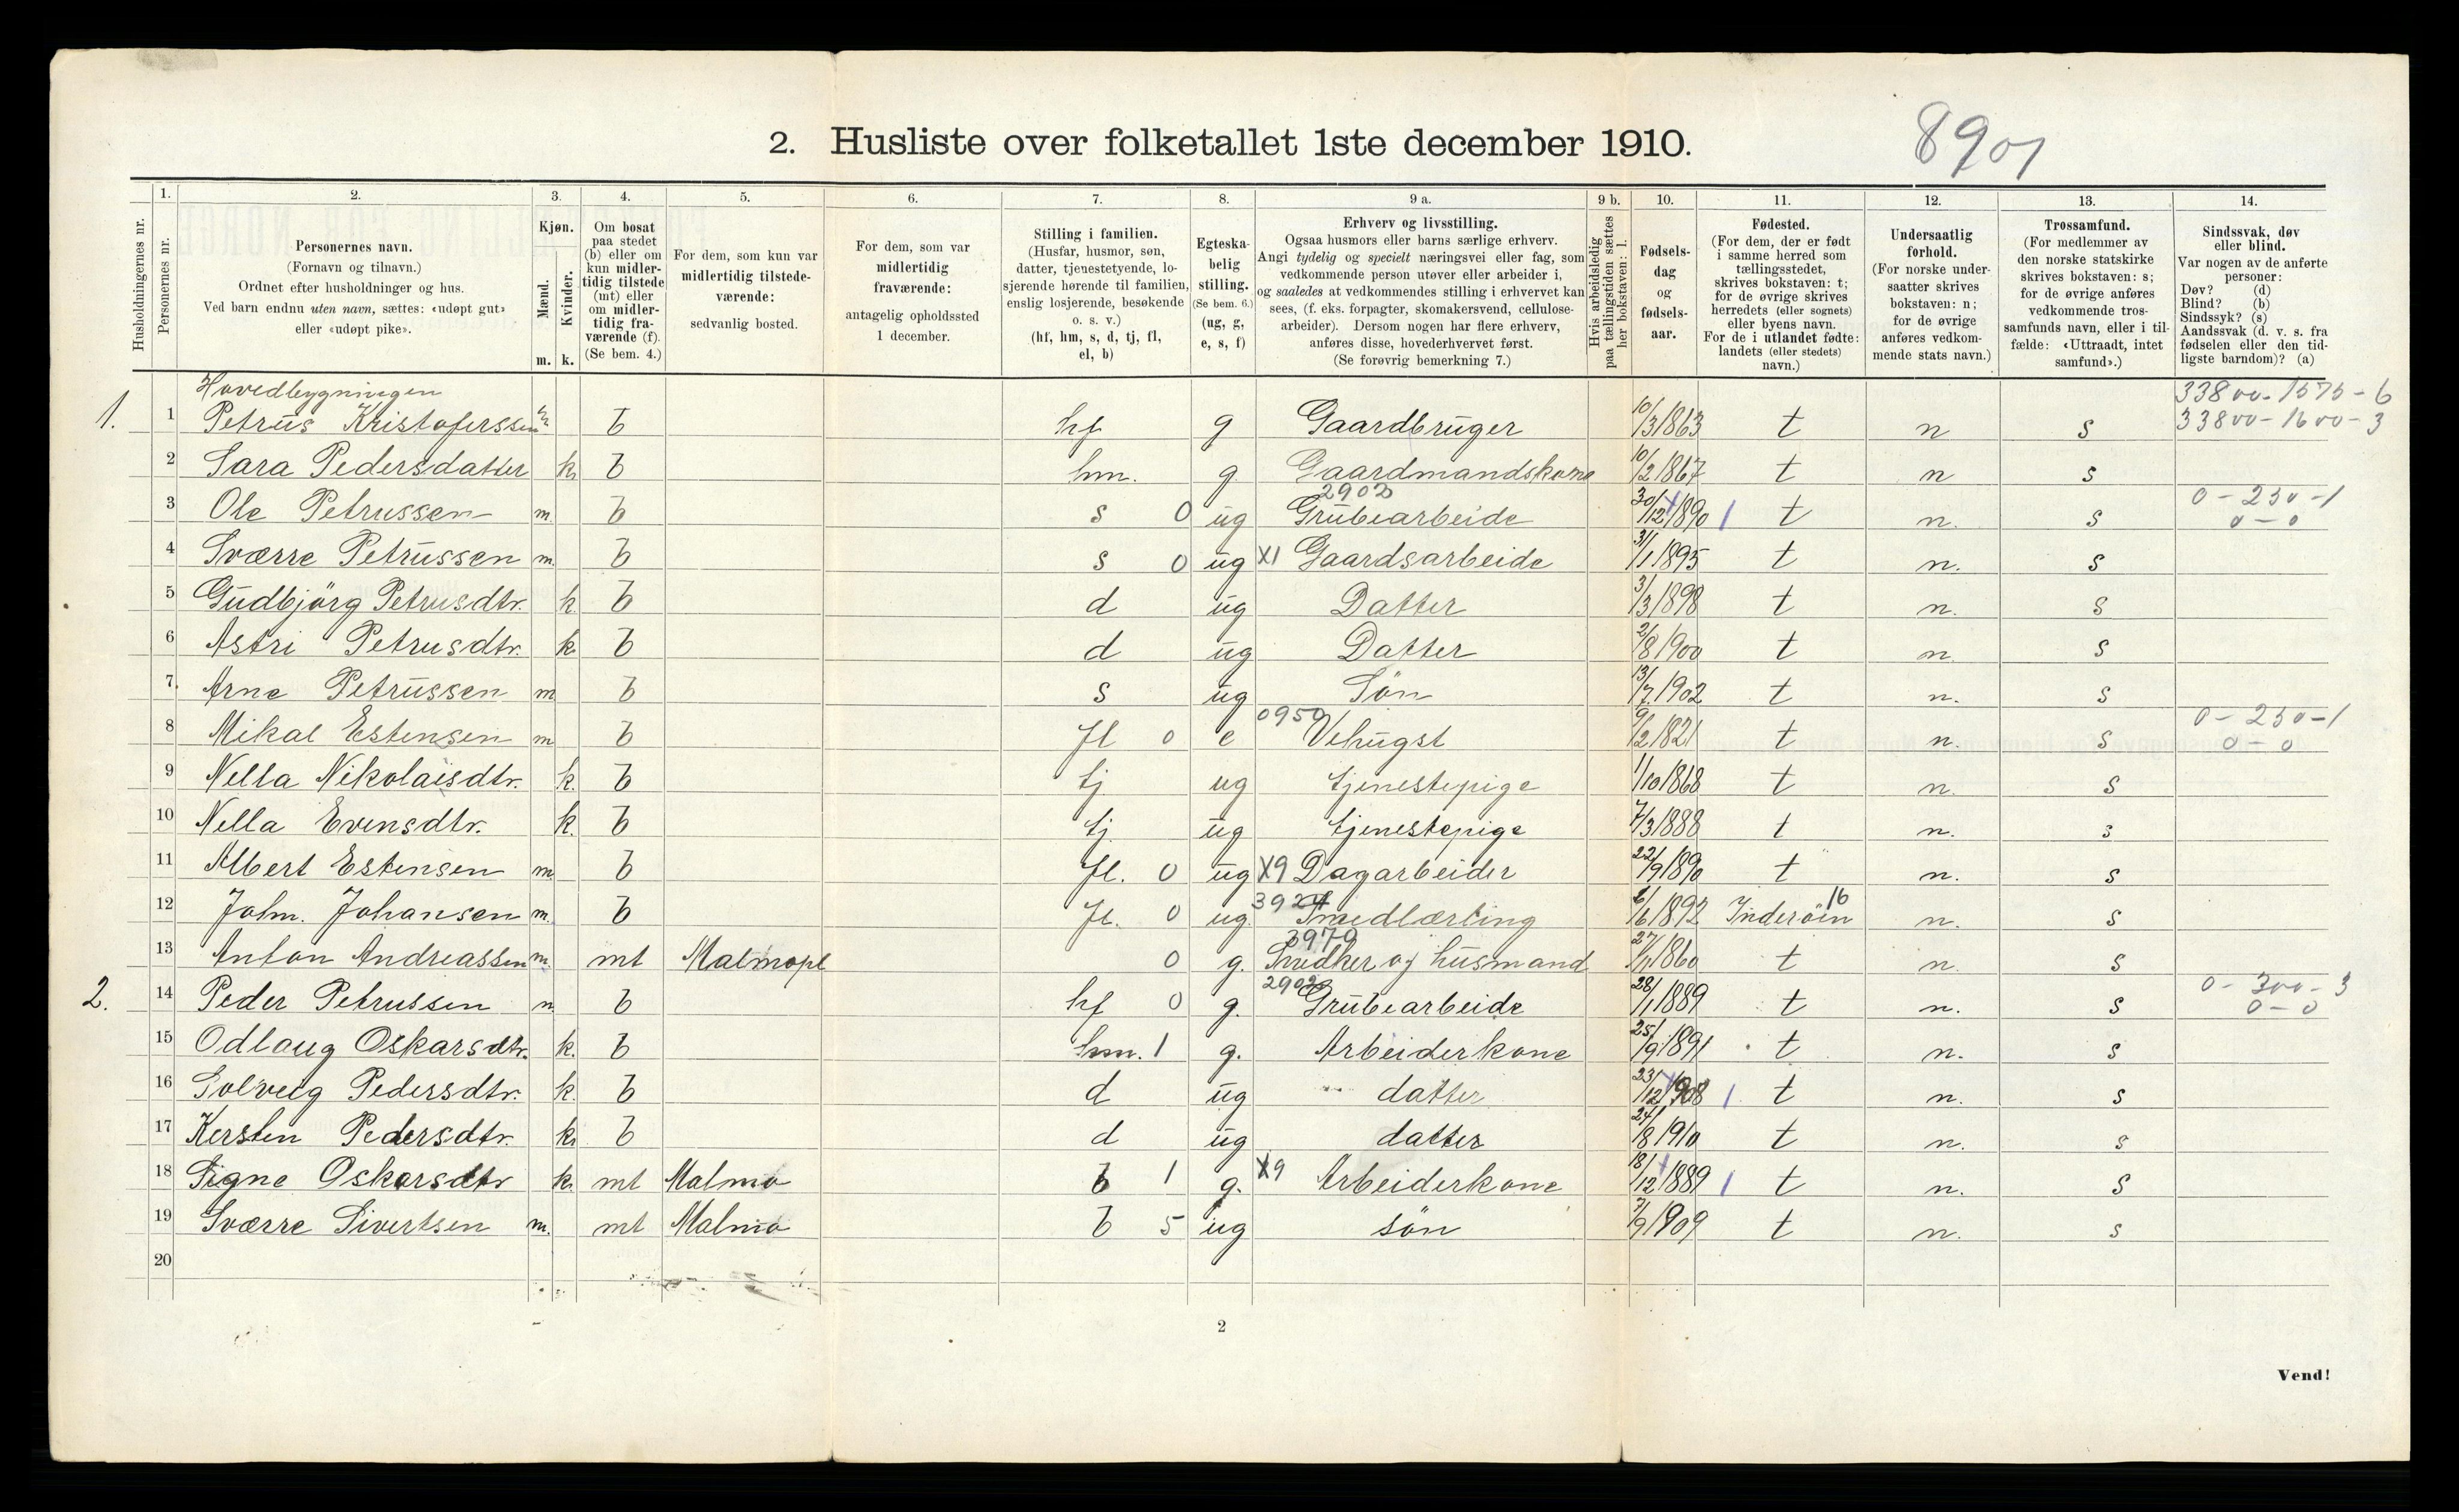 2. Husliste over folketallet 1ste december 1910.
8901
Husholdningernes nr.
1.
Personernes nr.
2.
Personernes navn.
(Fornavn og tilnavn.)
Ordnet efter husholdninger og hus.
Ved barn endnu uten navn, sættes: «udøpt gut»
eller «udøpt pike».
3.
Kjøn.
Mænd.
Kvinder.
m. k.
4.
Om bosat
paa stedet
(b) eller om
kun midler-
tidig tilstede
(mt) eller
om midler-
tidig fra-
værende (f).
(Se bem. 4.)
5.
For dem, som kun var
midlertidig tilstede-
værende:
sedvanlig bosted.
6.
For dem, som var
midlertidig
fraværende:
antagelig opholdssted
1 december.
7.
Stilling i familien.
(Husfar, husmor, søn,
datter, tjenestetyende, lo-
sjerende hørende til familien,
enslig losjerende, besøkende
o. s. v.)
(hf, hm, s, d, tj, fl,
el, b)
8.
Egteska-
belig
stilling.
(Se bem. 6.)
(ug, g,
e, s, f)
9 a.
Erhverv og livsstilling.
Ogsaa husmors eller barns særlige erhverv.
Angi tydelig og specielt næringsvei eller fag, som
vedkommende person utøver eller arbeider i,
og saaledes at vedkommendes stilling i erhvervet kan
sees, (f. eks. forpagter, skomakersvend, cellulose-
arbeider). Dersom nogen har flere erhverv,
anføres disse, hovederhvervet først.
(Se forøvrig bemerkning 7.)
9 b.
Hvis arbeidsledig
paa tællingstiden sættes
her bokstaven: l.
10.
Fødsels-
dag
og
fødsels-
aar.
11.
Fødested.
(For dem, der er født
i samme herred som
tællingsstedet,
skrives bokstaven: t;
for de øvrige skrives
herredets (eller sognets)
eller byens navn.
For de i utlandet fødte:
landets (eller stedets)
navn.)
12.
Undersaatlig
forhold.
(For norske under-
saatter skrives
bokstaven: n;
for de øvrige
anføres vedkom-
mende stats navn.)
13.
Trossamfund.
(For medlemmer av
den norske statskirke
skrives bokstaven: s;
for de øvrige anføres
vedkommende tros-
samfunds navn, eller i til-
fælde: «Uttraadt, intet
samfund».)
14.
Sindssvak, døv
eller blind.
Var nogen av de anførte
personer:
Døv? (d)
Blind? (b)
Sindssyk? (s)
Aandssvak (d. v. s. fra
fødselen eller den tid-
ligste barndom)? (a)
Hovedbygningen 33800-1575-6
1. 1 Petrus Kristoferssen m b hf g Gaardbruger 10/3 1863 t n s 33800-1600-3
2 Sara Pedersdatter k b hm. g Gaardmandskone 10/2 1867 t n s
3 Ole Petrussen m b s 0 ug 2902 Grubearbeide 30/12 1890 1 t n. s 0-250-1 0-0
4 Sværre Petrussen m. b s 0 ug X1 Gaardsarbeide 31/1 1895 t n. s
5 Gudbjörg Petrusdtr. k b d ug Datter 3/3 1898 t n. s
6 Astri Petrusdtr. k b d ug Datter 2/8 1900 t n. s
7. Arne Petrussen m b s ug Sön 13/7 1902 t n. s
8 Mikal Estensen m b fl 0 e 0950 9/2 1821 t n. s 0-250-1 0-0
9 Nella Nikolaisdtr. k. b tj ug tjenestepige 1/10 1868 t n. s
10 Nella Evensdtr. k. b tj ug tjenestepige 7/3 1888 t n. s
11 Albert Estensen m b fl. 0 ug X9 Dagarbeider 22/9 1890 t n. s
12 John. Johansen m. b fl. 0 ug. 3924 Smedlærling 6/6 1892 Inderöin 16 n. s
13 Anton Andreassen m. mt Malmopl 0 g. 3970 og husmand 27/1 1860 t n. s
2. 14 Peder Petrussen m b hf 0 g. 2902 Grubearbeide 28/1 1889 t n. s 0-300-3 0-0
15 Odlaug Oskarsdtr. k. b hm. 1 g. Arbeiderkone 25/9 1891 t n. s
16 Solveig Pedersdtr. k. b d ug datter 23/12 1908 1 t n. s
17 Kersten Pedersdtr. k. b d ug datter 24/8 1910 t n. s
18 Signe Oskarsdtr k. mt Malmo b 1 g. X9 Arbeiderkone 18/12 1889 1 t n. s
19 Sværre Sivertsen m. mt Malmo b 5 ug sön 3/9 1909 t n. s
20
2
Vend!